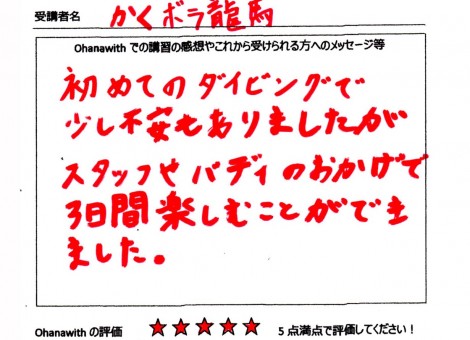 受講者名 かくボラ龍馬
Ohanawith での講習の感想やこれから受けられる方へのメッセージ等
初めてのダイビングで
少し不安もありましたが
スタッフやバディのおかげで
3日間楽しむことができ
ました。
Ohanawith の評価 ★★★★★ 5点満点で評価してください！